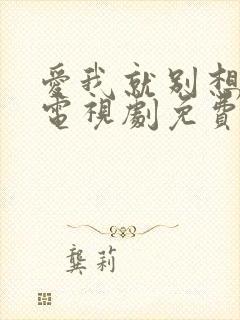 愛我就别想
電視劇免費
龔莉